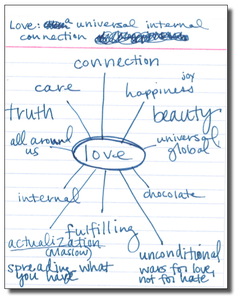 Love: a universal internal
connection
connection
care
joy
happiness
truth
beauty
all around
us
love
universal
global
internal
chocolate
fulfilling
actualization
(Maslow)
unconditional
spreading what
you have
wars for love,
not for hate